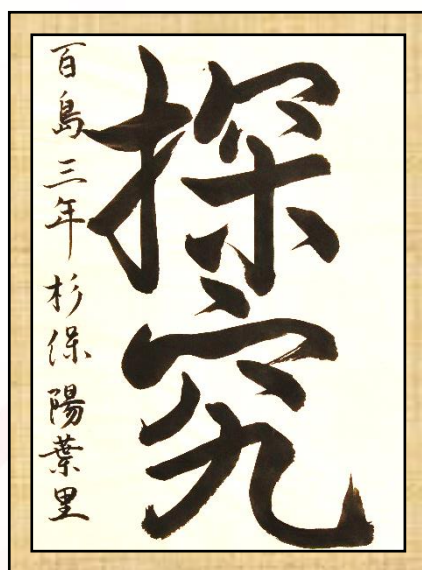 探究
百島 三年 杉保 陽葉里